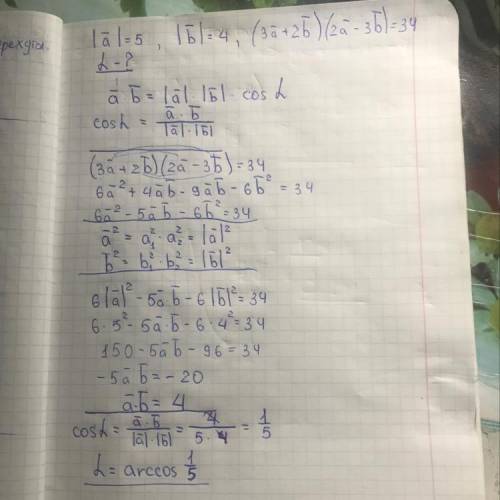 |a̅|=5 , |b̅|=4 , (3a̅+2b̅)(2a̅-3b̅)=34
L-?
a̅·b̅=|a̅|·|b̅|·cosL
cosL=a̅·b̅/|a̅|·|b̅|
(3a̅+2b̅)(2a̅-3b̅)=34
6a̅²+4a̅b̅-9a̅b̅-6b̅²=34
6a̅²-5a̅b̅-6b̅²=34
a̅²=a₁²·a₂²=|a̅|²
b̅²=b₁²·b₂²=|b̅|²
6|a̅|²-5a̅·b̅-6|b̅|²=34
6·5²-5a̅·b̅-6·4²=34
150-5a̅b̅-96=34
-5a̅b̅=-20
a̅·b̅=4
cosL=a̅·b̅/|a̅|·|b̅|=4/5·4=1/5
L=arccos 1/5